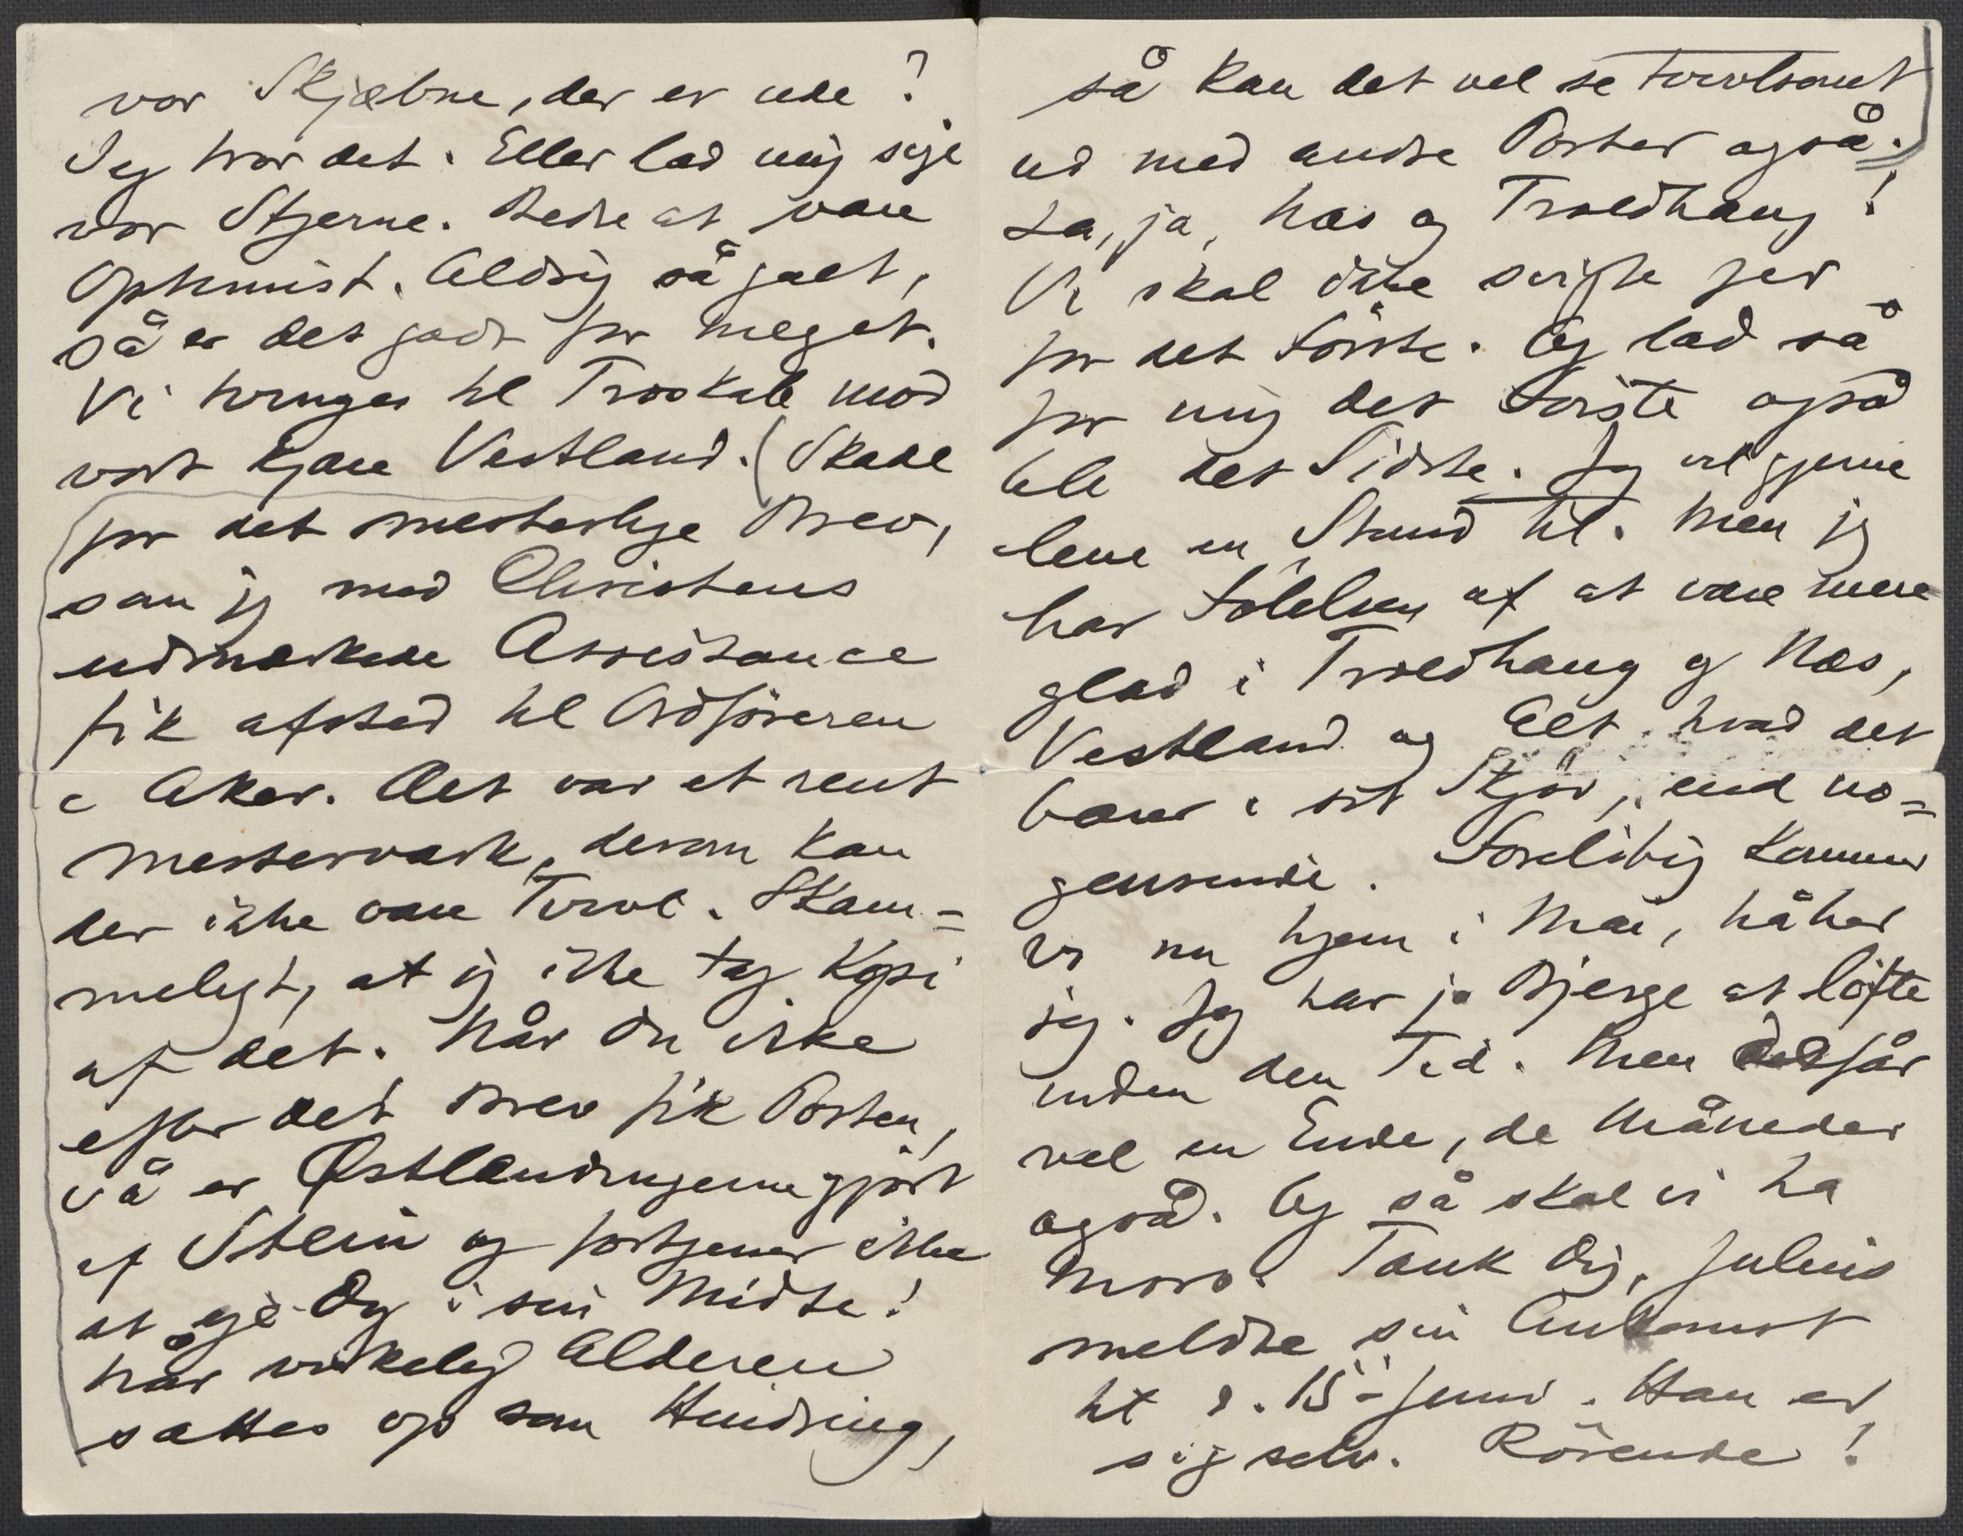 vor Skjæbne, der er ude?
Jeg tror det. Eller lad mig sige
vor Stjerne. Bedre at være
Optimist. Aldrig så galt,
så er det godt for meget.
Vi tvinges til Troskab mod
vort kjære Vestland. (Skade
for det mesterlige Brev,
som jeg med Christens
udmærkede Assistance
fik afsted til Ordføreren
i Aker. Det var et rent
Mesterværk, derom kan
der ikke være Tvivl. Skam=
meligt, at jeg ikke tog Kopi
af det. Når Du ikke
efter det Brev fik Posten,
så er Østlændingerne gjort
af Sten og fortjener ikke
at eje Dig i sin Midte!
Når virkelig Alderen
sættes op som Hindring,
så kan det vel se tvivlsomt
ud med andre Poster også.)
Ja, ja, Næs og Troldhaug!
Vi skal ikke svigte jer
for det Første. Og lad så
for mig det Første også
bli det Sidste. Jeg vil gjerne
leve en Stund til. Men jeg
har Følelsen af at være mere
glad i Troldhaug og Næs,
Vestland og Alt hvad det
bærer i sit Skjød, end no=
gensinde. Foreløbig kommer
vi nu hjem i Mai, håber
jeg. Jeg har jo Bjerge at løfte
inden den Tid. Men det får
vel en Ende, de Måneder
også. Og så skal vi ha
Moro. Tænk Dig, Julius
meldte sin Ankomst
til d. 15de Juni. Han er
sig selv. Rørende!